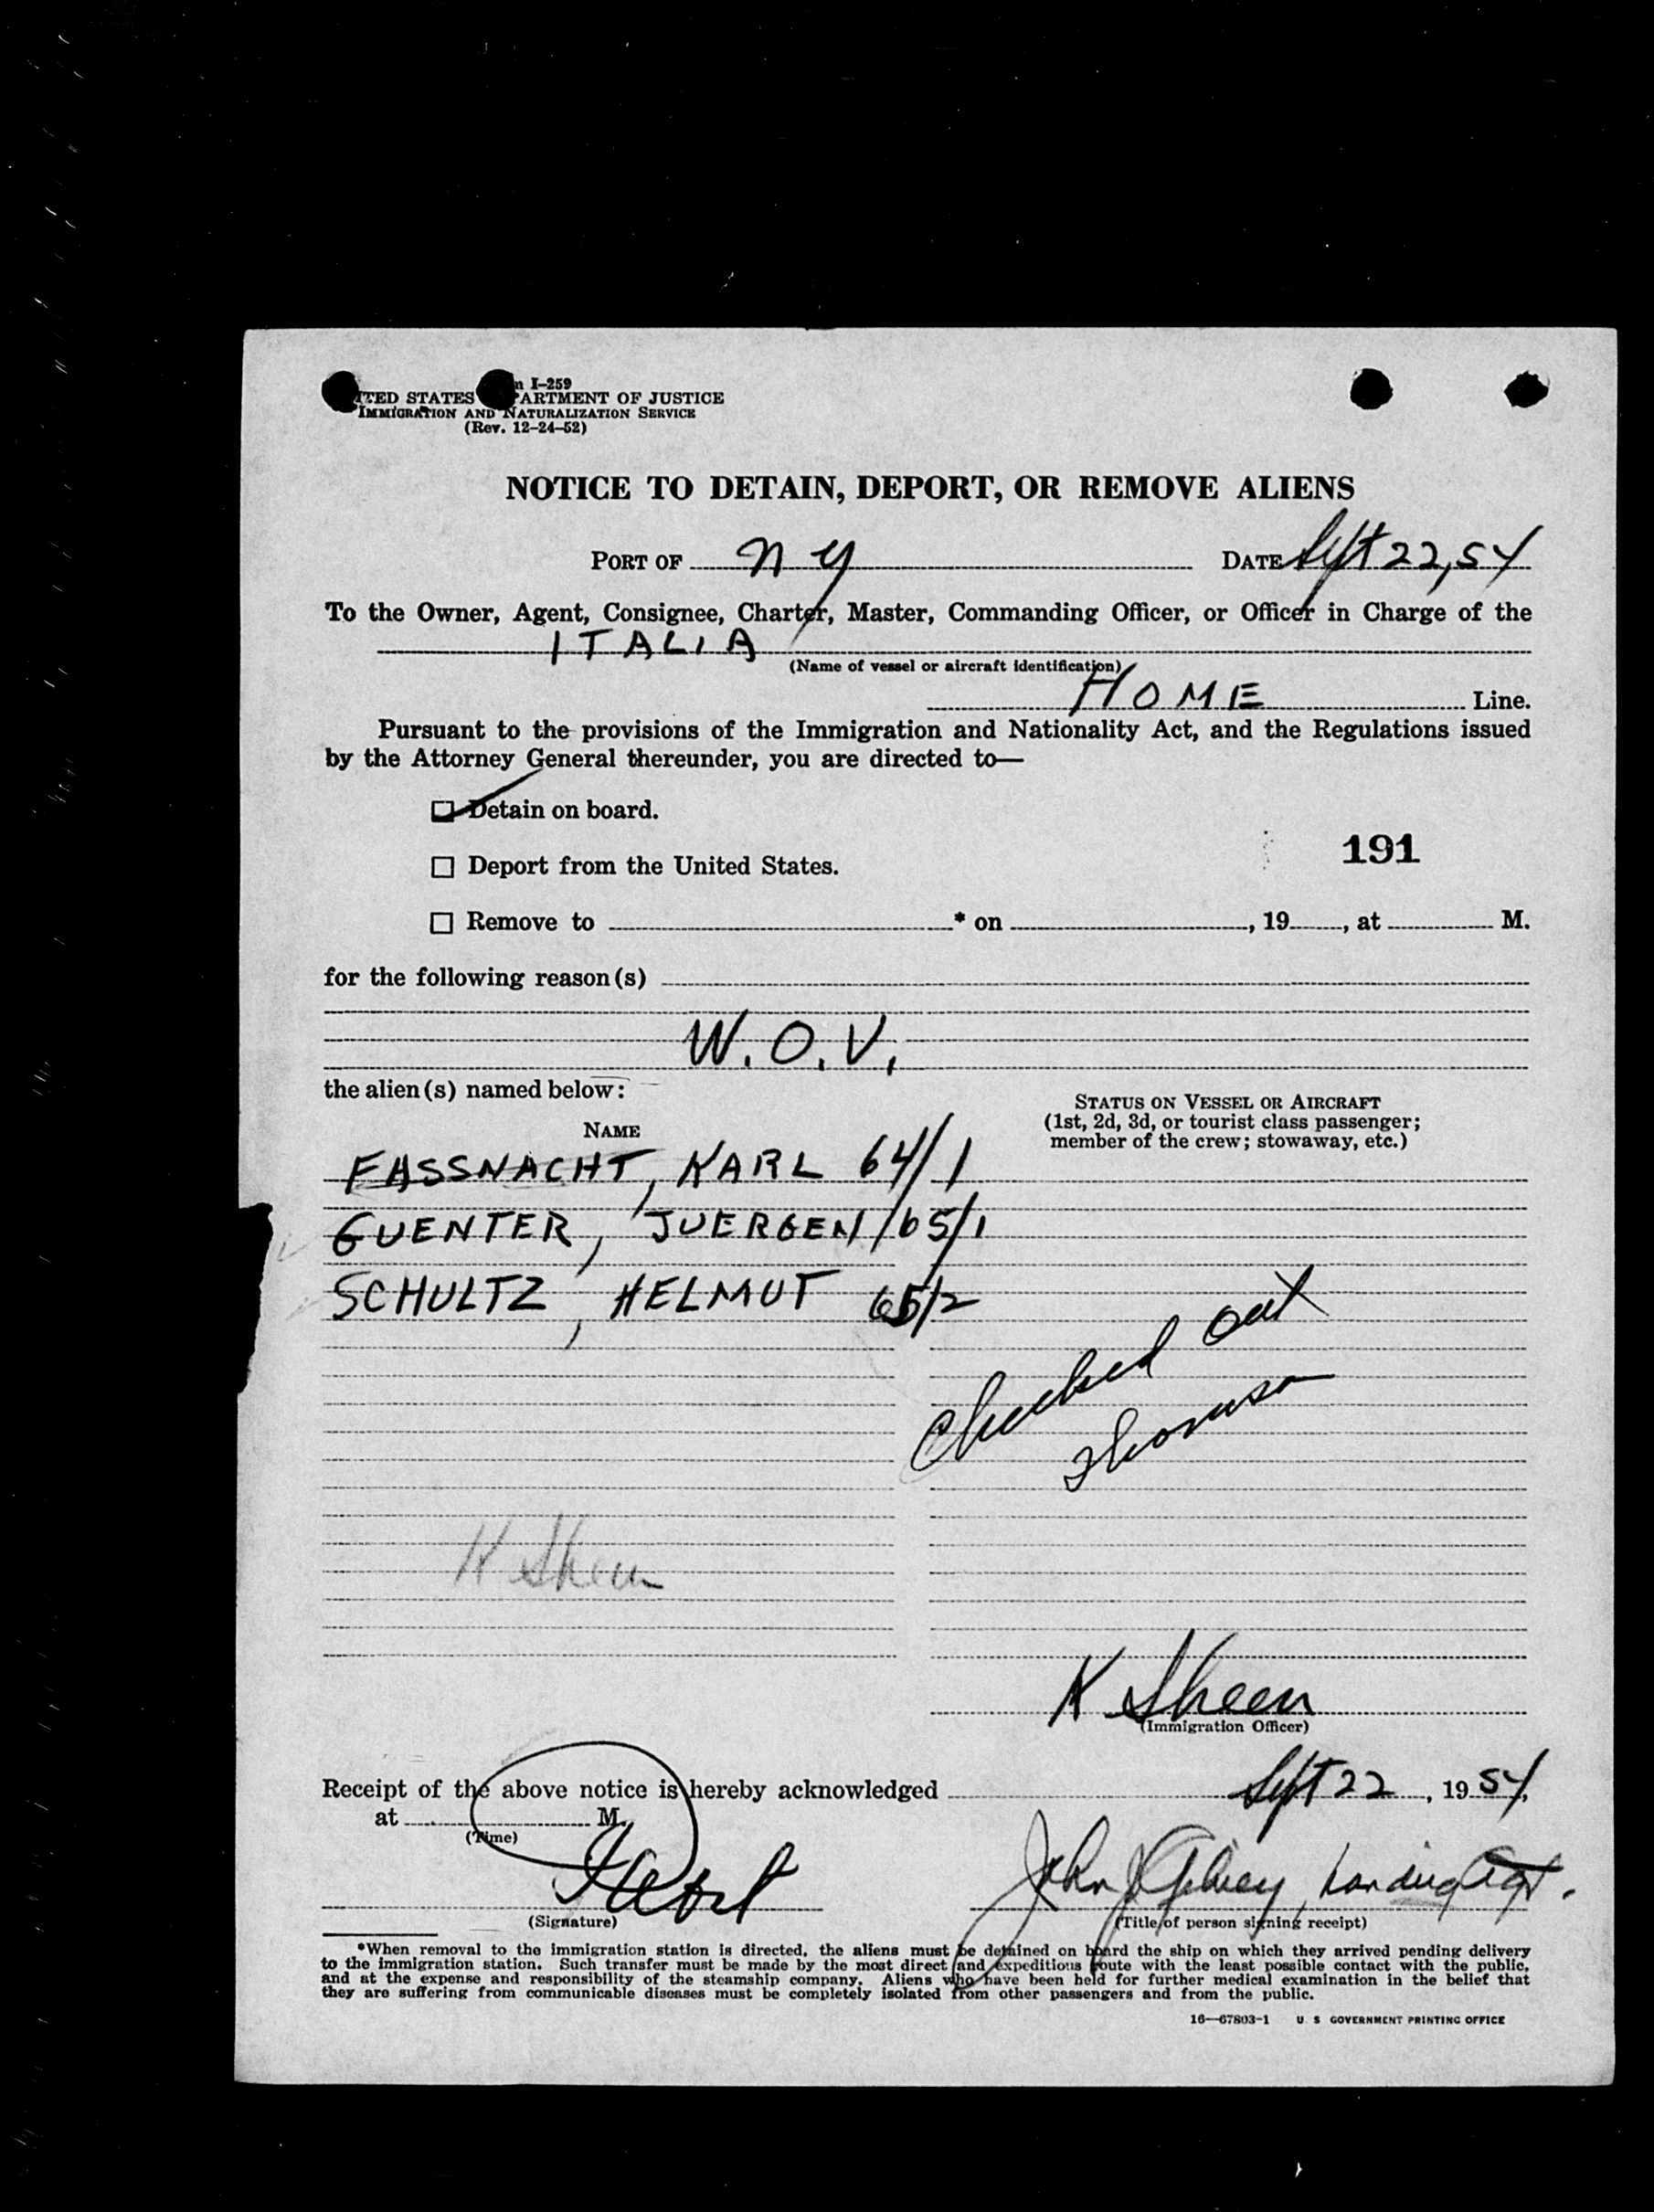 Form I-259
UNITED STATES DEPARTMENT OF JUSTICE
IMMIGRATION AND NATURALIZATION SERVICE
(Rev. 12-24-52)
NOTICE TO DETAIN, DEPORT, OR REMOVE ALIENS
PORT OF N Y DATE Sept 22, 54
To the Owner, Agent, Consignee, Charter, Master, Commanding Officer, or Officer in Charge of the
ITALIA
(Name of vessel or aircraft identification)
HOME Line.
Pursuant to the provisions of the Immigration and Nationality Act, and the Regulations issued
by the Attorney General thereunder, you are directed to—
Detain on board.
191
Deport from the United States.
Remove to * on , 19 , at M.
for the following reason(s)
W.O.V.
the alien(s) named below:
STATUS ON VESSEL OR AIRCRAFT
(1st, 2d, 3d, or tourist class passenger;
member of the crew; stowaway, etc.)
NAME
FASSNACHT, KARL 64/1
GUENTER, JUERGEN 65/1
SCHULTZ, HELMUT 65/2
Checked out
K Sheen
K Sheen
(Immigration Officer)
Receipt of the above notice is hereby acknowledged Sept 22, 1954,
at M.
(Time)
John J Landing Agt.
(Signature) (Title of person signing receipt)
*When removal to the immigration station is directed, the aliens must be detained on board the ship on which they arrived pending delivery
to the immigration station. Such transfer must be made by the most direct and expeditious route with the least possible contact with the public,
and at the expense and responsibility of the steamship company. Aliens who have been held for further medical examination in the belief that
they are suffering from communicable diseases must be completely isolated from other passengers and from the public.
16—67803-1 U S GOVERNMENT PRINTING OFFICE